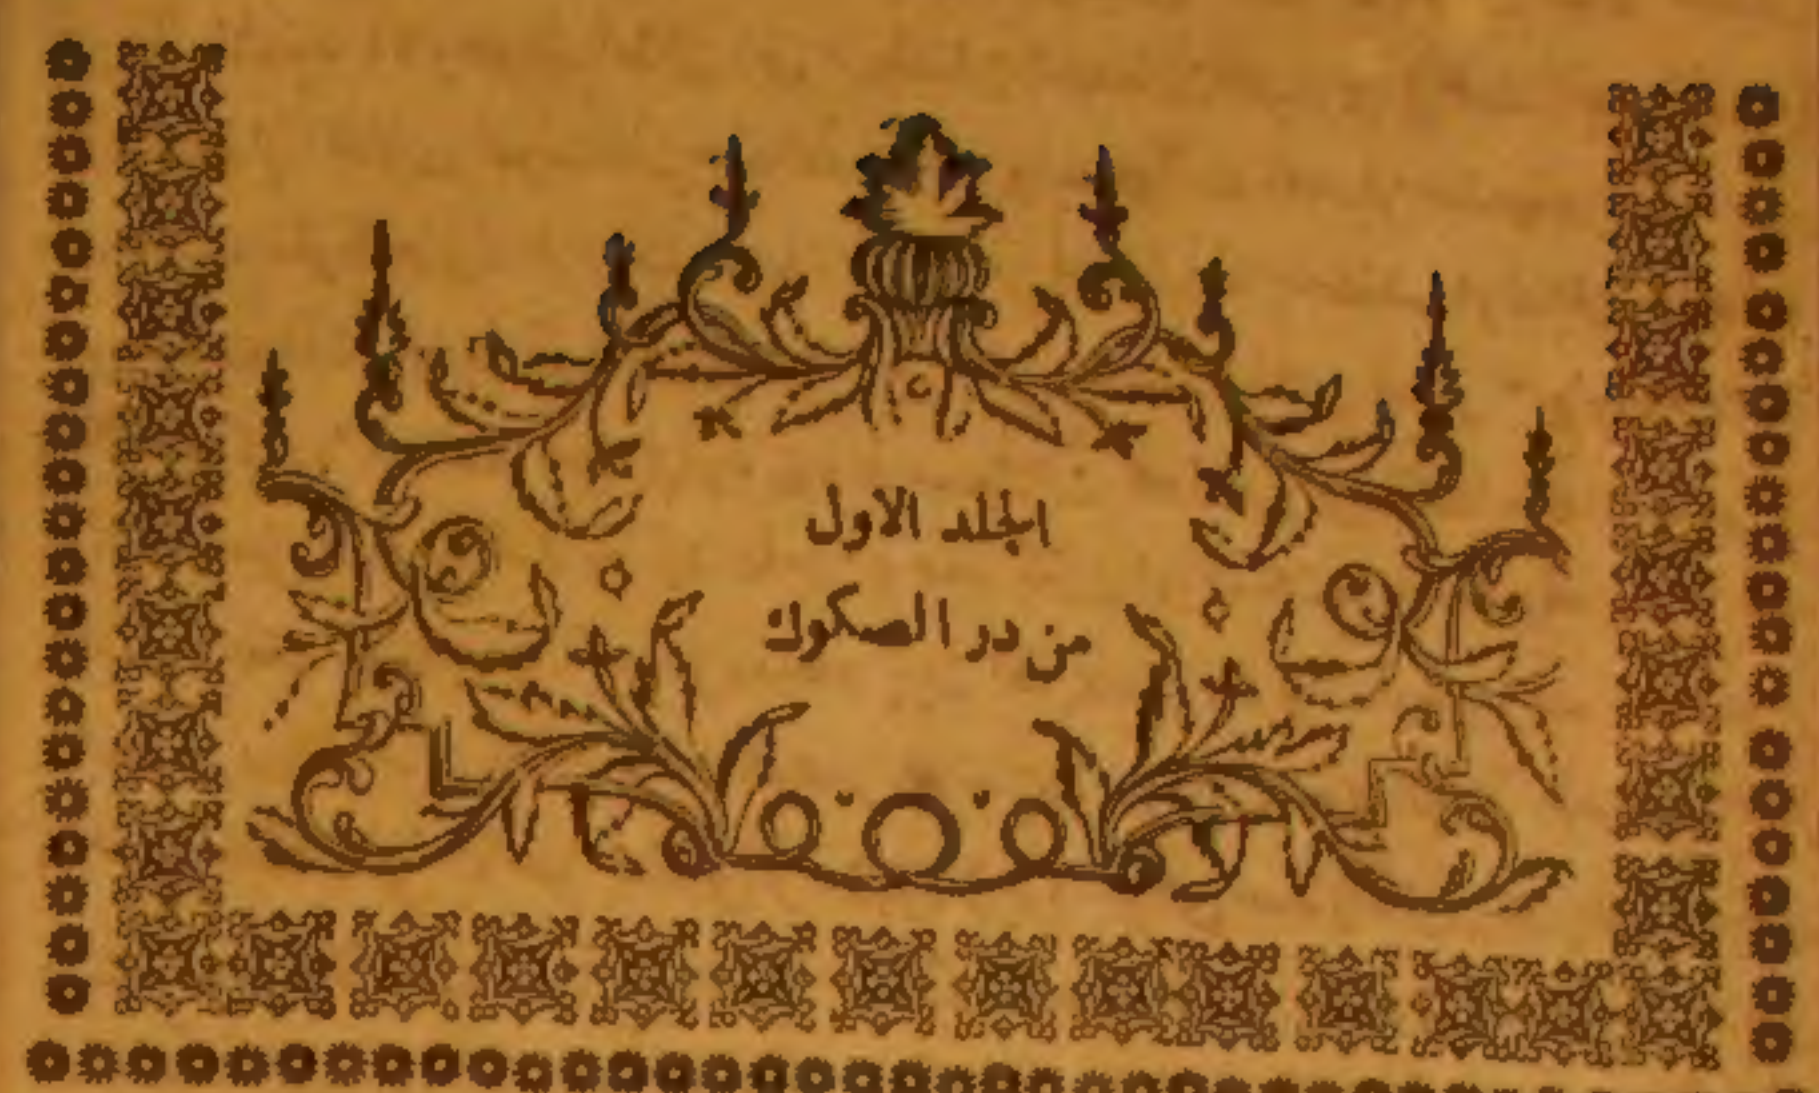 الجلد الاول
من در الصكوك